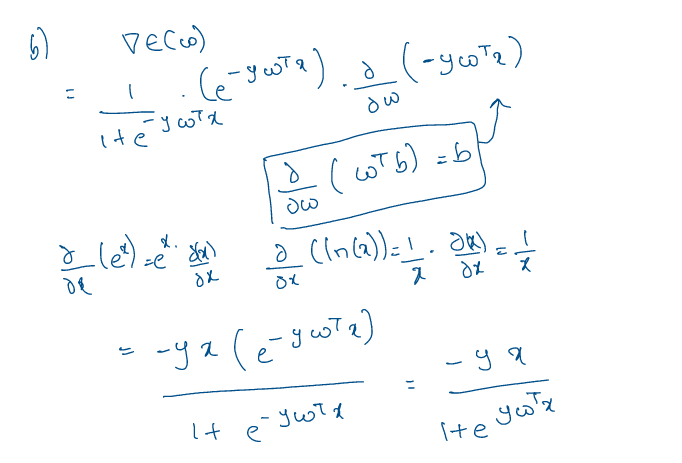 b) ∇E(ω)
= 1/(1+e^{-yω^T x}) · (e^{-yω^T x}) · ∂/∂ω (-yω^T x)
∂/∂ω (ω^T b) = b
∂/∂x (e^x) = e^x · ∂(x)/∂x    ∂/∂x (ln(x)) = 1/x · ∂(x)/∂x = 1/x
= -yx(e^{-yω^T x})/(1+e^{-yω^T x}) = -yx/(1+e^{yω^T x})